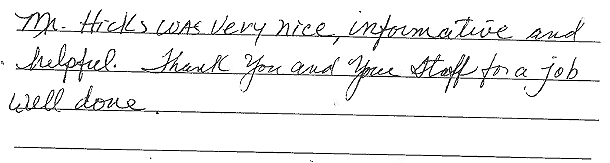 Mr. Hicks was very nice, informative and
helpful. Thank You and Your Staff for a job
well done.